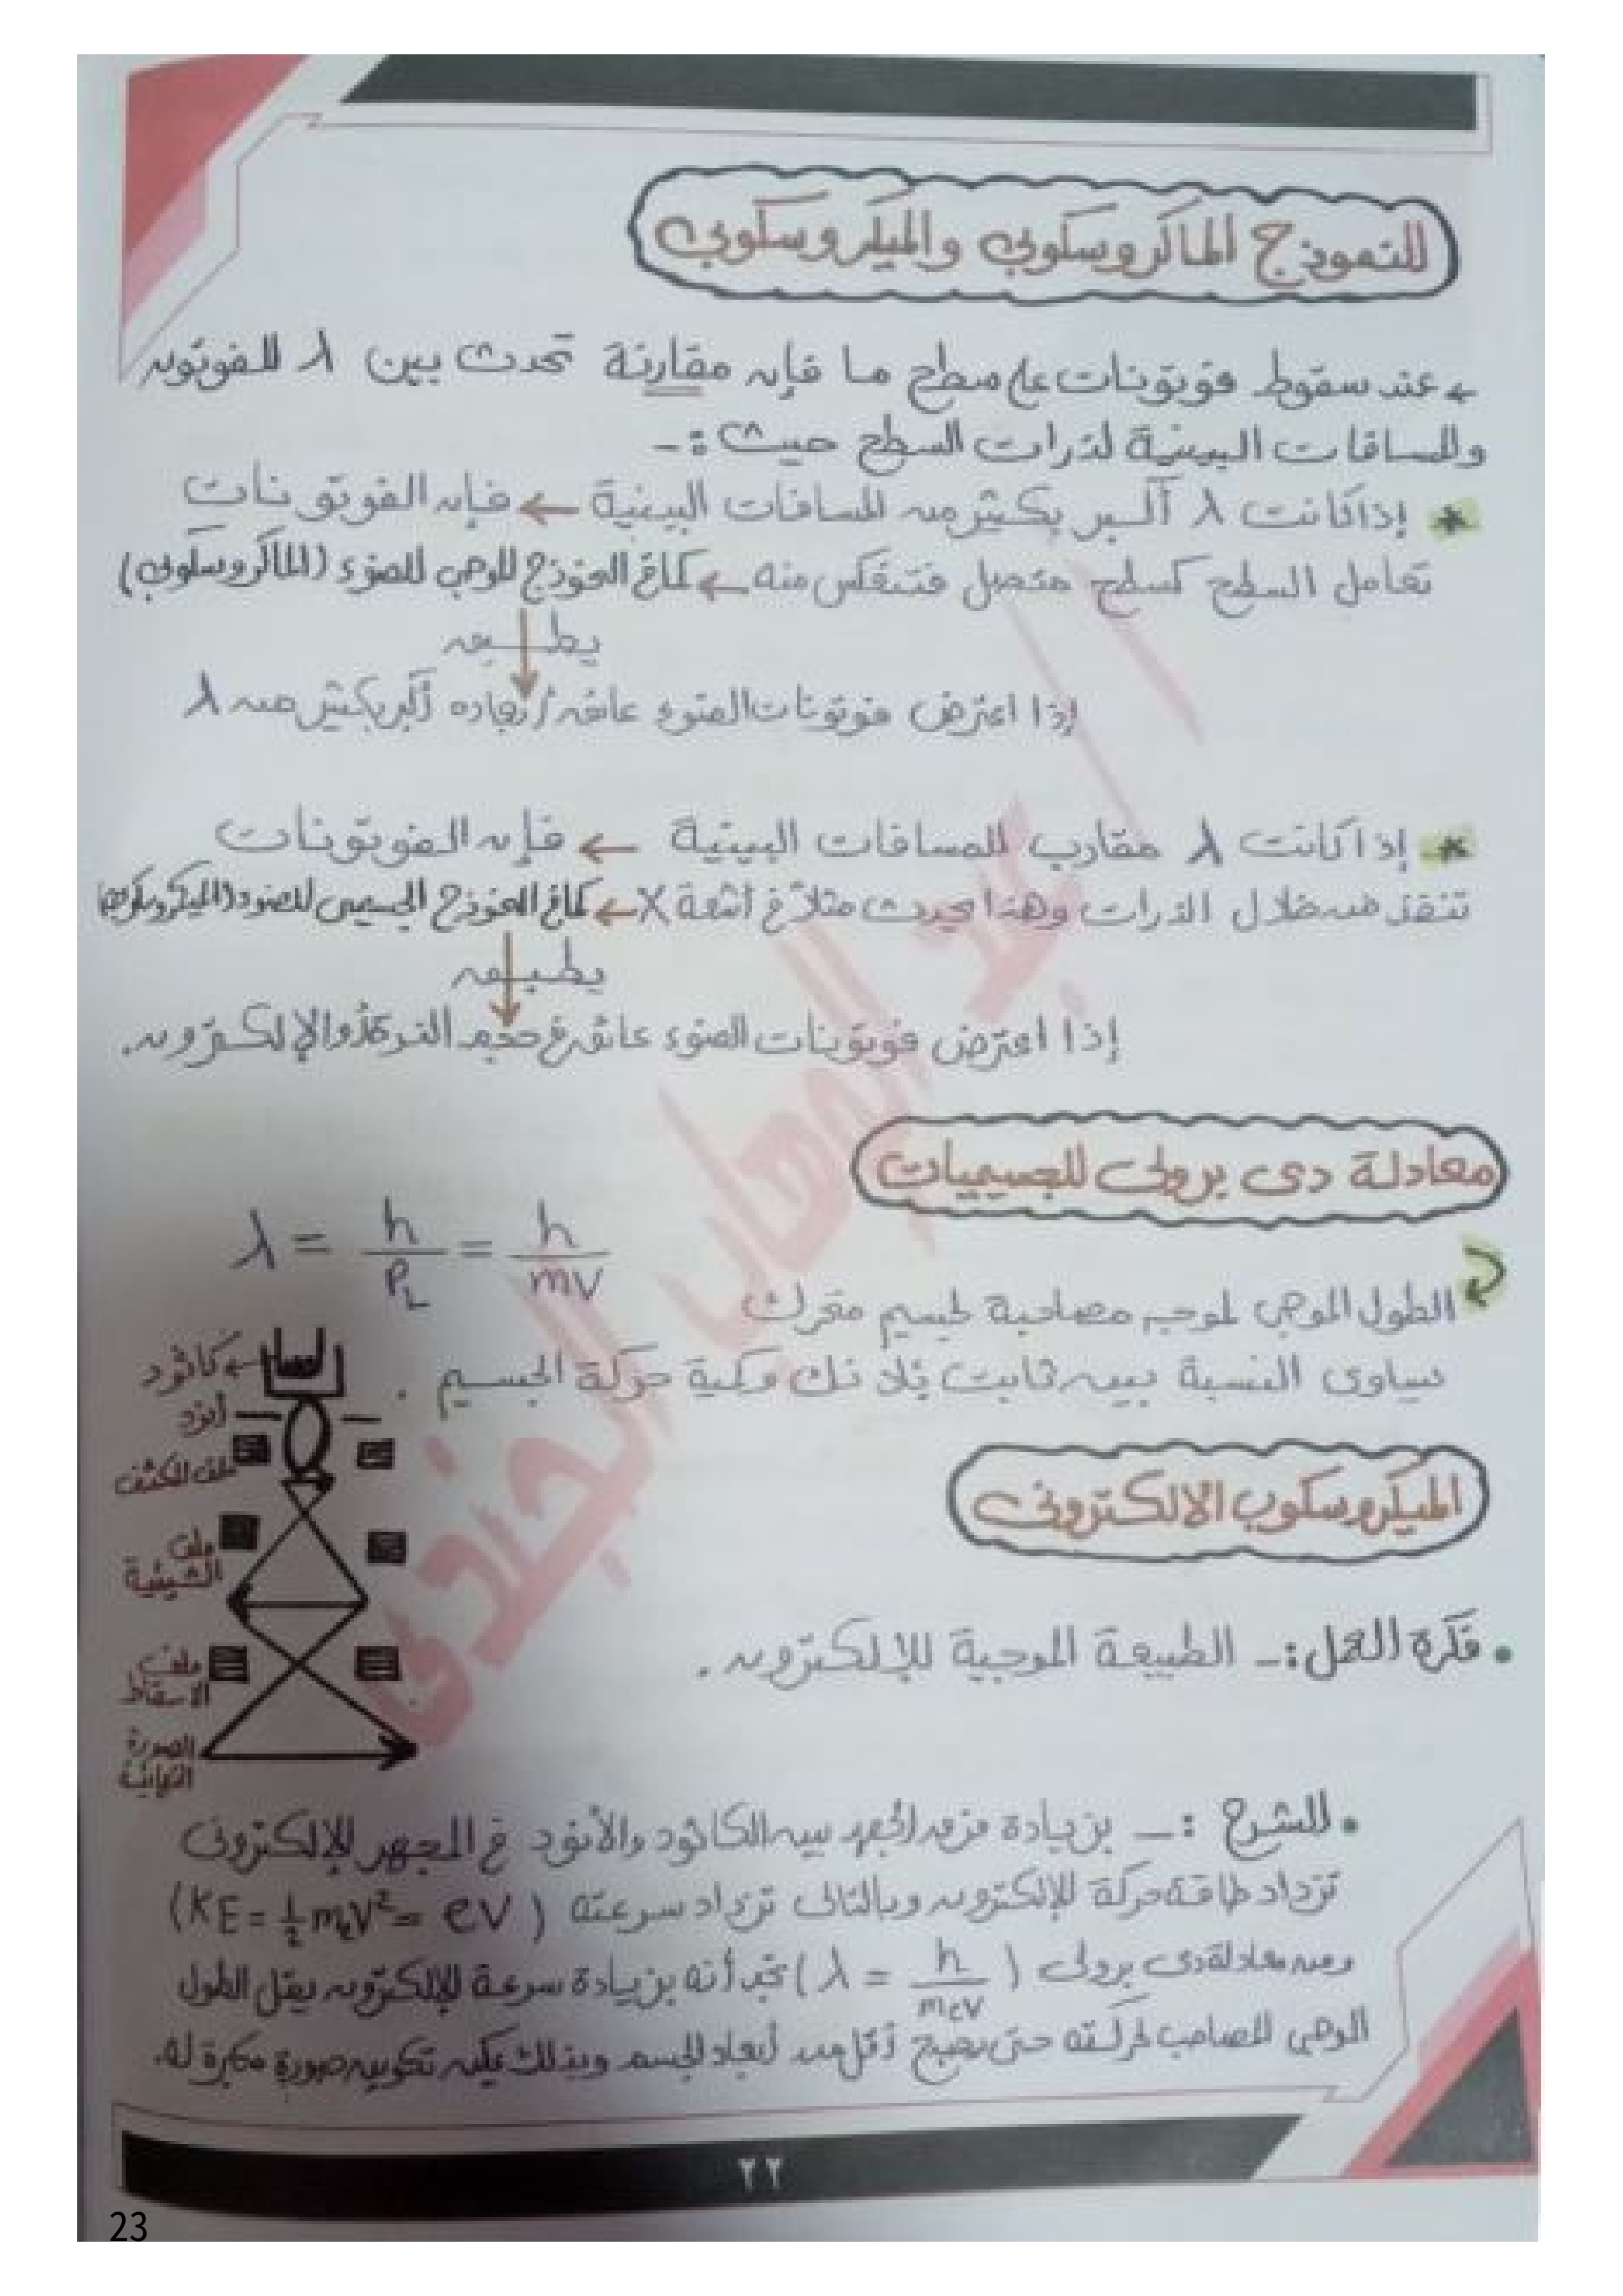 النموذج الماكروسكوبي والميكروسكوبي
← عند سقوط فوتونات على سطح ما فإن مقارنة تحدث بين λ للفوتون
والمسافات البينية لذرات السطح حيث :-
* إذا كانت λ أكبر بكثير من المسافات البينية ← فإن الفوتونات
تعامل السطح كسطح متصل فتنعكس منه ← كما في النموذج الموجي للضوء (الماكروسكوبي)
يطبق
إذا اعترض فوتونات الضوء عائق أبعاده أكبر بكثير من λ
* إذا كانت λ مقارب للمسافات البينية ← فإن الفوتونات
تنفذ من خلال الذرات وهذا يحدث مثلاً في أشعة X ← كما في النموذج الجسيمي للضوء (الميكروسكوبي)
يطبق
إذا اعترض فوتونات الضوء عائق في حجم الذرة أو الإلكترون.
معادلة دى برولى للجسيمات
λ = h/P_L = h/mv
الطول الموجي لموجة مصاحبة لجسيم متحرك
يساوى النسبة بين ثابت بلانك وكمية حركة الجسيم .
كاثود
أنود
ملف المكثف
ملف
الشيئية
ملف
الاسقاط
الصورة
النهائية
الميكروسكوب الالكترونى
• فكرة العمل :- الطبيعة الموجية للإلكترون .
• الشرح :- بزيادة فرق الجهد بين الكاثود والأنود في المجهر الإلكترونى
تزداد طاقة حركة الإلكترون وبالتالى تزداد سرعته (KE = ½ mₑv² = eV)
ومن معادلة دى برولى (λ = h/mₑv) نجد أنه بزيادة سرعة الإلكترون يقل الطول
الموجي المصاحب لحركته حتى يصبح أقل من أبعاد الجسم وبذلك يمكن تكوين صورة مكبرة له.
عبد الوهاب الجندى
٢٢
23